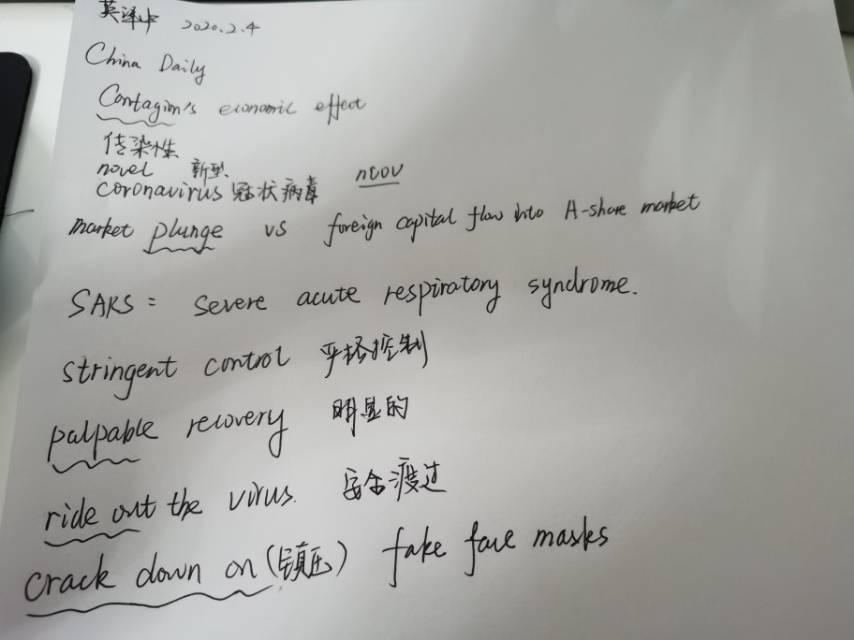 英译中 2020.2.4
China Daily
Contagion's economic effect
传染性
novel 新型
coronavirus 冠状病毒 ncov
market plunge vs foreign capital flow into A-share market
SARS = severe acute respiratory syndrome.
stringent control 严格控制
palpable recovery 明显的
ride out the virus. 安全渡过
crack down on (镇压) fake face masks